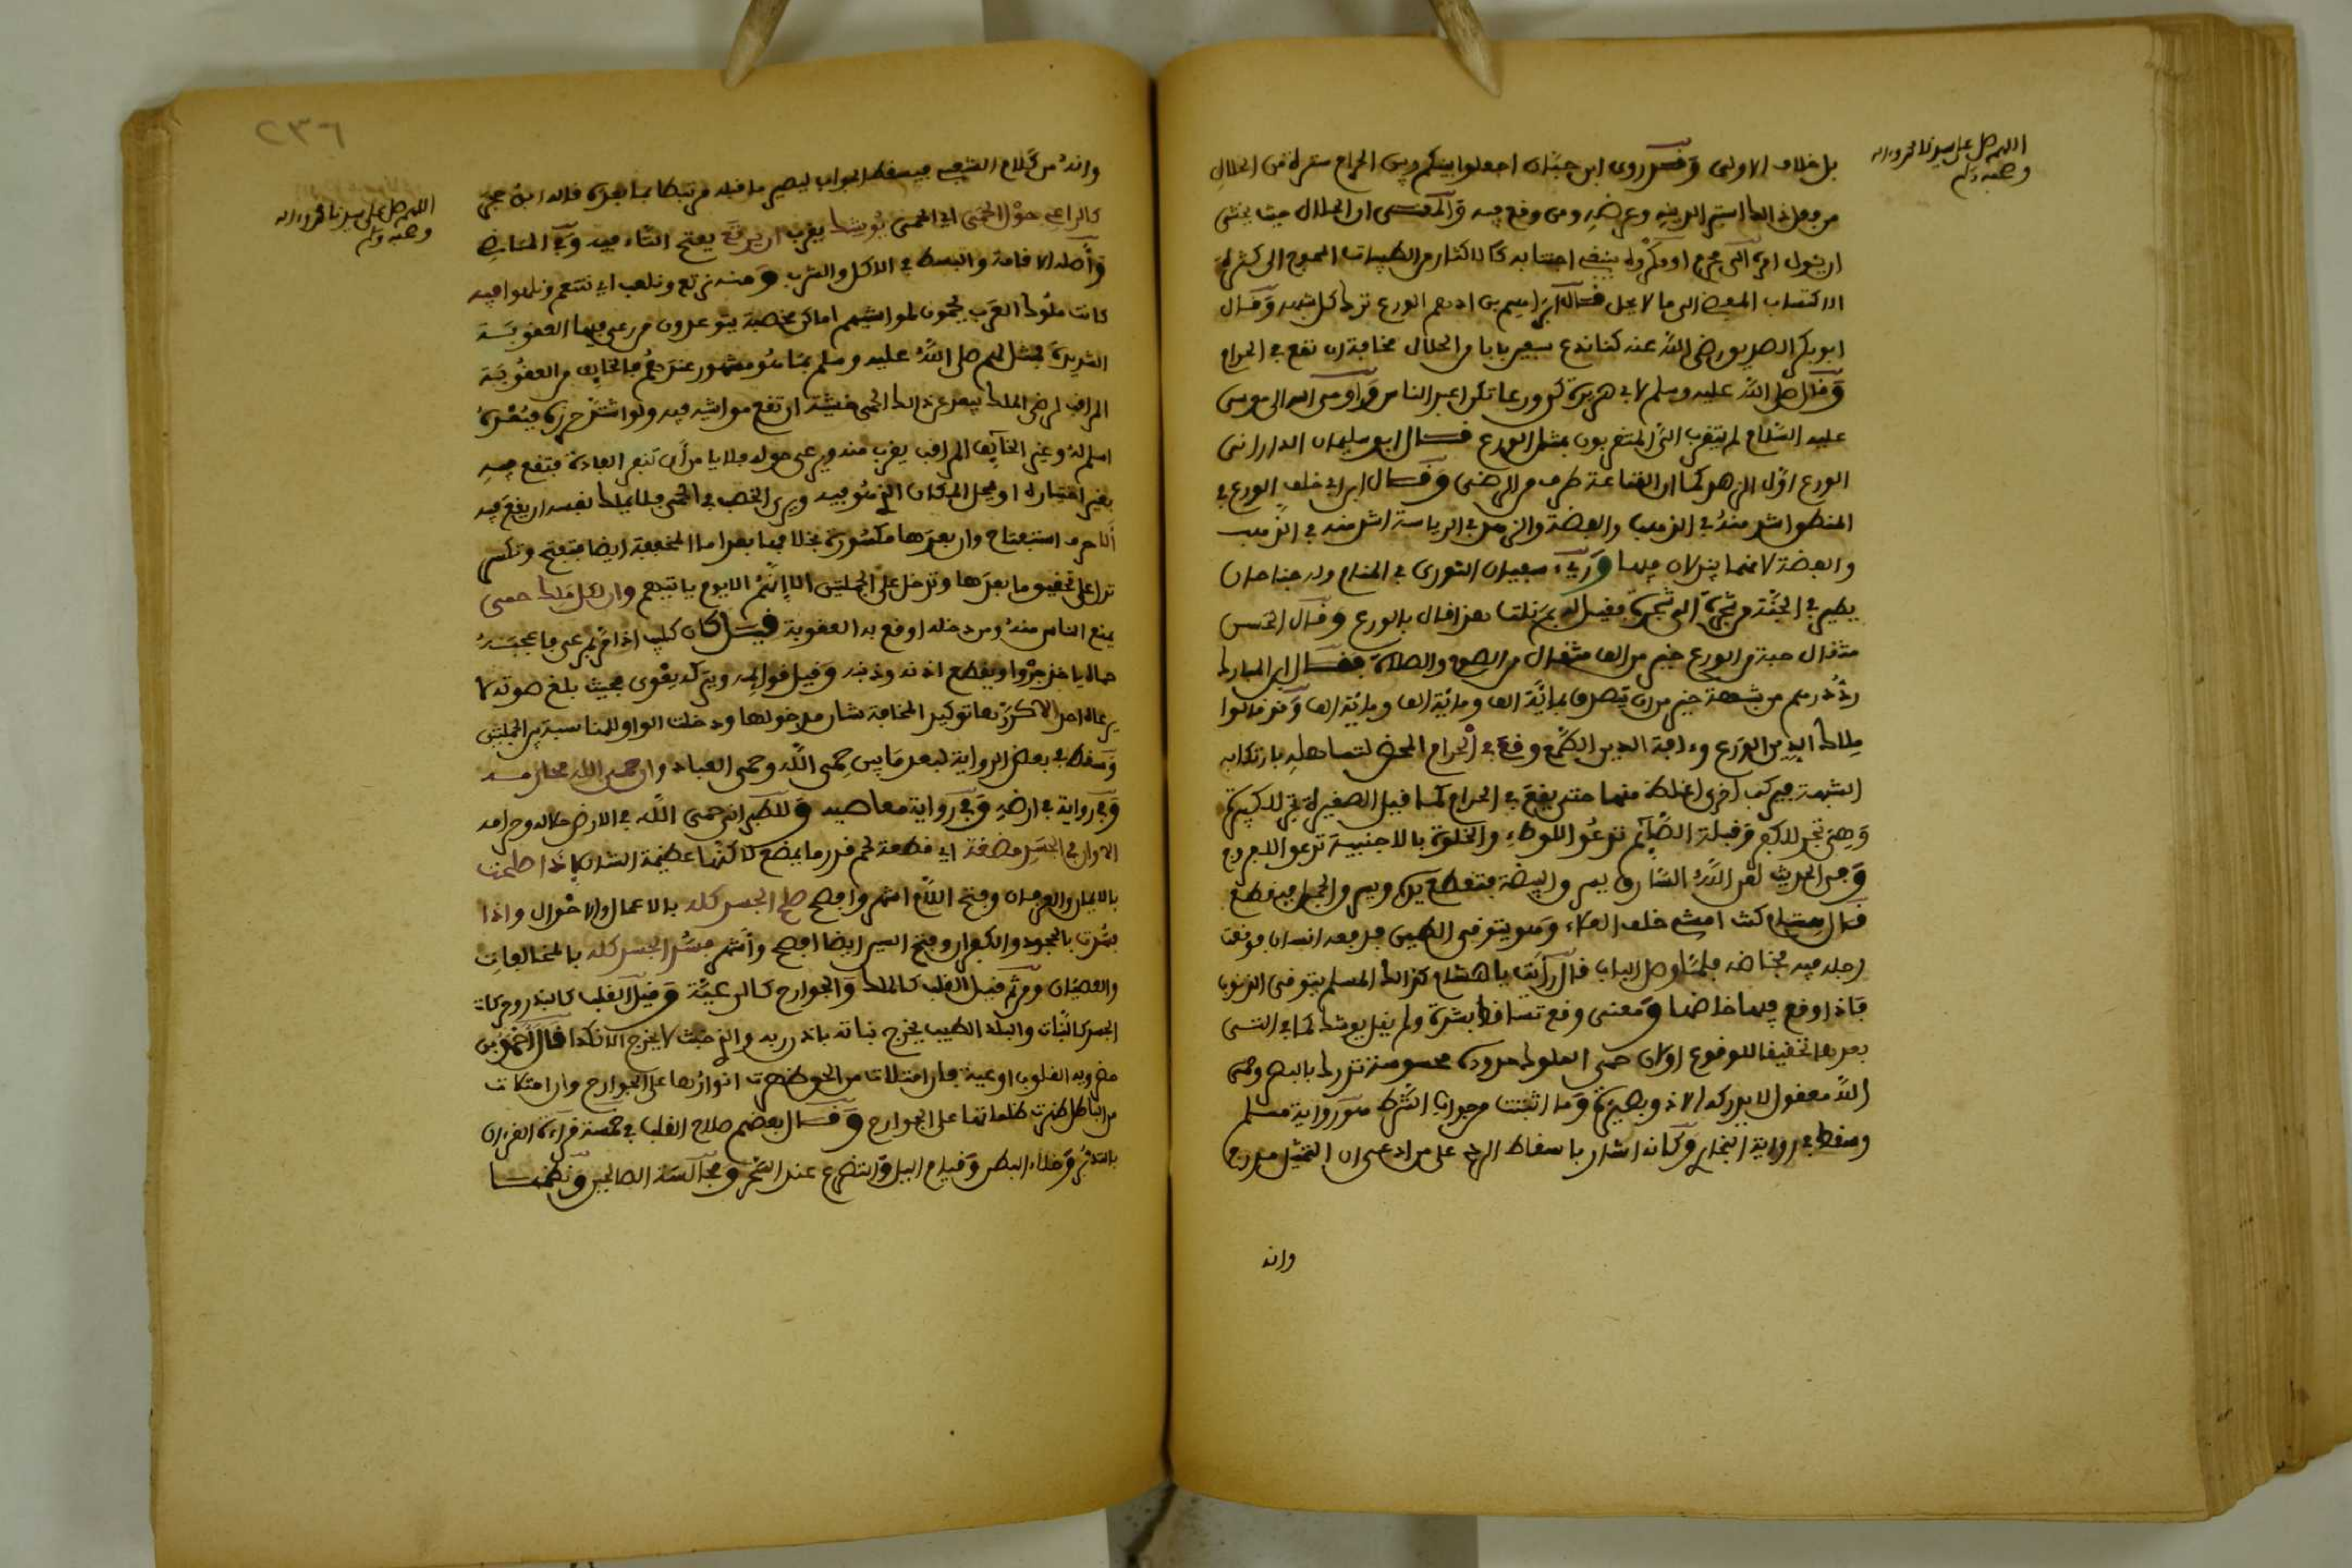 اللهم صل على سيدنا محمد واله
وصحبه وسلم
بل خلاف الاولى وقد روى ابن حبان اجعلوا بينكم وبين الحرام سترة من الحلال
من فعل ذلك استبرا لدينه وعرضه ومن وقع فيه والمعنى ان الحلال حيث يخشى
ان يئول امره الى محرم او مكروه ينبغي اجتنابه كالاكثار من الطيبات المحوج الى كثرة
الاكتساب الموقع الى ما لا يحل قال ابراهيم بن ادهم الورع ترك كل شبهة وقال
ابو بكر الصديق رضي الله عنه كنا ندع سبعين بابا من الحلال مخافة ان نقع في الحرام
وقال صلى الله عليه وسلم لابي هريرة كن ورعا تكن اعبد الناس واوحى الله الى موسى
عليه السلام لم يتقرب الي المتقربون بمثل الورع قال ابو سليمان الداراني
الورع اول الزهد كما ان القناعة طرف من الرضى وقال ابن ابي خلف الورع في
المنطق اشد منه في الذهب والفضة والزهد في الرياسة اشد منه في الذهب
والفضة لانهما يبذلان فيها ورئي سفيان الثوري في المنام وله جناحان
يطير في الجنة من شجرة الى شجرة فقيل له بم نلت هذا قال بالورع وقال الحسن
مثقال حبة من الورع خير من الف مثقال من الصوم والصلاة وقال ابن المبارك
رد درهم من شبهة خير من ان تتصدق بمائة الف ومائة الف ومائة الف وقد قالوا
ملاك الدين الورع وءافة الدين الطمع وقع في الحرام المحض لتساهله بارتكابه
الشبهة فيركب اخرى اغلظ منها حتى يقع في الحرام كما قيل الصغيرة تجر للكبيرة
وهي تجر للكفر وقبلة الصائم تدعو للوطء والخلوة بالاجنبية تدعو للفجور
وفي الحديث لعن الله السارق يسرق البيضة فتقطع يده ويسرق الحبل فيقطع
قال هشام كنت امشي خلف العلاء وهو يتوقى الطين فدفعه انسان فوقعت
رجله فيه فخاضه فلما وصل الباب قال رايت يا هشام كذلك المسلم يتوقى الذنوب
فاذا وقع فيها خاضها ومعنى وقع تساقط بشرة ولم يقل يوشك كما في النسى
بعد هذا تحقيقا للوقوع اولان حمى الملوك حدوده محسوسة تدرك بالبصر وحمى
الله معقول لا يدركه الا ذو بصيرة وما اثبتت من جواب الشرط هو رواية مسلم
وسقط في رواية البخاري وكانه اشار باسقاط الرد على من ادعى ان التمثيل مدرج
وانه
٢٣٦
اللهم صل على سيدنا محمد واله
وصحبه وسلم
وانه من كلام الشعبي فيسقط الجواب ليصير ما قبله مرتبطا بما بعده قاله ابن حجر
كالراعي حول الحمى اي المحمى يوشك يقرب ان يرتع بفتح التاء فيه وفي الماضي
واصله الاقامة والتبسط في الاكل والشرب ومنه نرتع ونلعب اي نتنعم ونلهوا فيه
كانت ملوك العرب يحمون لمواشيهم اماكن مخصبة يتوعدون من رعى فيها العقوبة
الشديدة فمثل لهم صلى الله عليه وسلم بما هو مشهور عندهم فالخايف من العقوبة
المراقب لرضى الملك يبعد عن ذلك الحمى خشية ان تقع مواشيه فيه ولو اشتد حرزه فبعده
اسلم له وغير الخايف المراقب يقرب منه ويرعى حوله فلا يامن ان تنفر العادية فتقع فيه
بغير اختياره او يمحل المكان الذي هو فيه ويرى الخصب في الحمى فلا يملك نفسه ان يقع فيه
الا حرف استفتاح وان بعدها مكسورة بخلافها بعد اما المخففة ايضا فتفتح وتكسر
تدل على تحقيق ما بعدها وتدخل على الجملتين الا انهم الا يوم ياتيهم وان لكل ملك حمى
يمنع الناس منه ومن دخله اوقع به العقوبة قيل كان كليب اذا اراد مرعى ما يعجبه
جاء ياخذ جروا ويقطع اذنه وذنبه وقيل قوائمه ويتركه يعوي فحيث بلغ صوته لا
يرعاه احد الا كررها توكيد المخافة شان مدخولها ودخلت الواو للمناسبة بين الجملتين
وسقط في بعض الرواية لبعد ما بين حمى الله وحمى العباد وان حمى الله محارمه
وفي رواية في ارضه وفي رواية معاصيه وللطبراني حمى الله في الارض حلاله وحرامه
الا وان في الجسد مضغة اي قطعة لحم قدر ما يمضغ لاكنها عظيمة الشان اذا صلحت
بالايمان والعرفان وفتح اللام اشهر وافصح صلح الجسد كله بالاعمال والاحوال واذا
فسدت بالجحود والكفران وفتح السين ايضا افصح واشهر فسد الجسد كله بالمخالفات
والعصيان ومن ثم قيل القلب كالملك والجوارح كالرعية وقيل القلب كالبذر وحركات
الجسد كالنبات والبلد الطيب يخرج نباته باذن ربه والذي خبث لا يخرج الا نكدا قال احمد بن
خضرويه القلوب اوعية فان امتلات من الحق ظهرت انوارها على الجوارح وان امتلات
من الباطل ظهرت ظلماتها على الجوارح وقال بعضهم صلاح القلب في خمسة قراءة القرءان
بالتدبر وخلاء البطن وقيام اليل والتضرع عند السحر ومجالسة الصالحين ونظمها